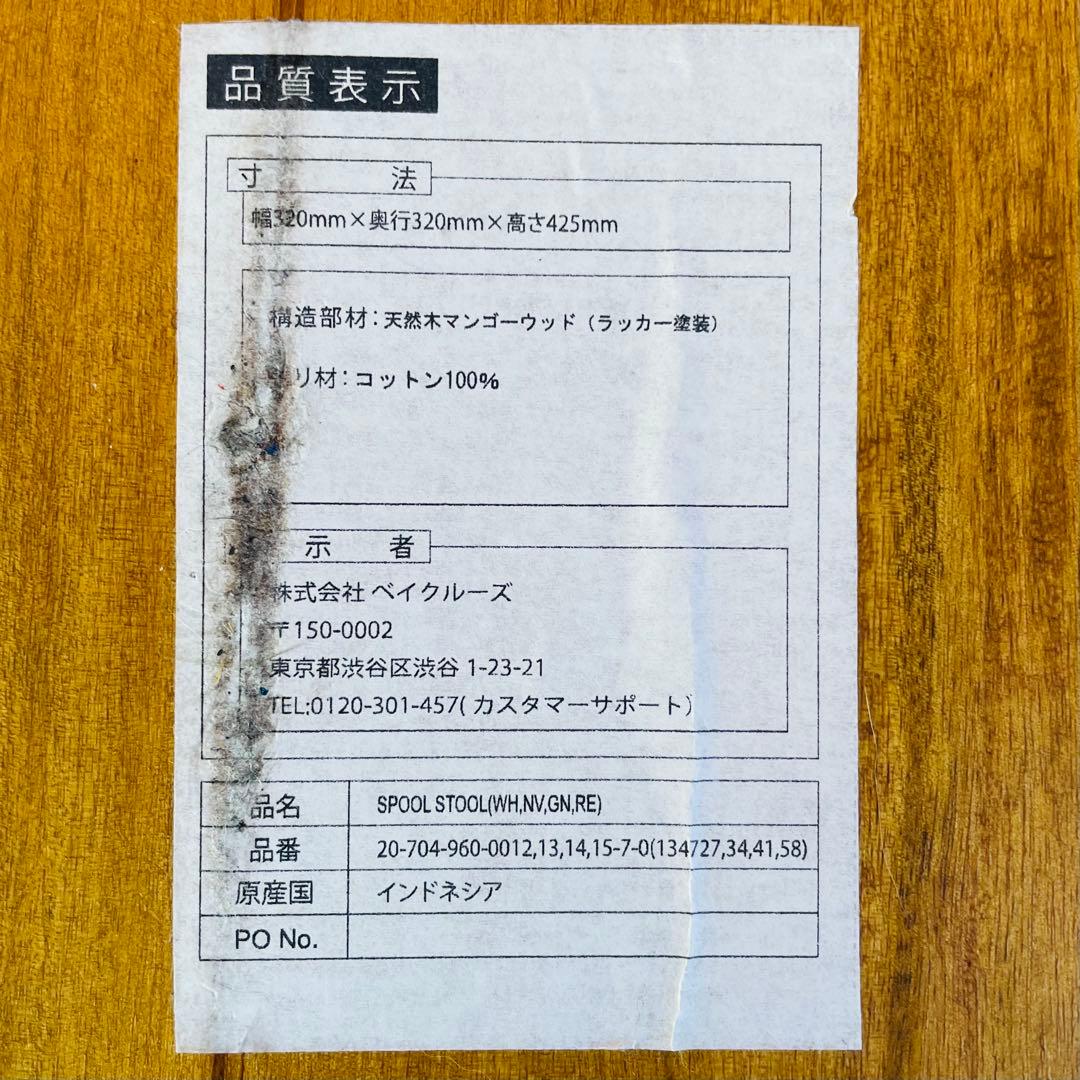 品質表示
寸法
幅320mm×奥行320mm×高さ425mm
構造部材：天然木マンゴーウッド（ラッカー塗装）
リ材：コットン100%
示者
株式会社 ベイクルーズ
〒150-0002
東京都渋谷区渋谷 1-23-21
TEL:0120-301-457( カスタマーサポート)
品名 SPOOL STOOL(WH,NV,GN,RE)
品番 20-704-960-0012,13,14,15-7-0(134727,34,41,58)
原産国 インドネシア
PO No.